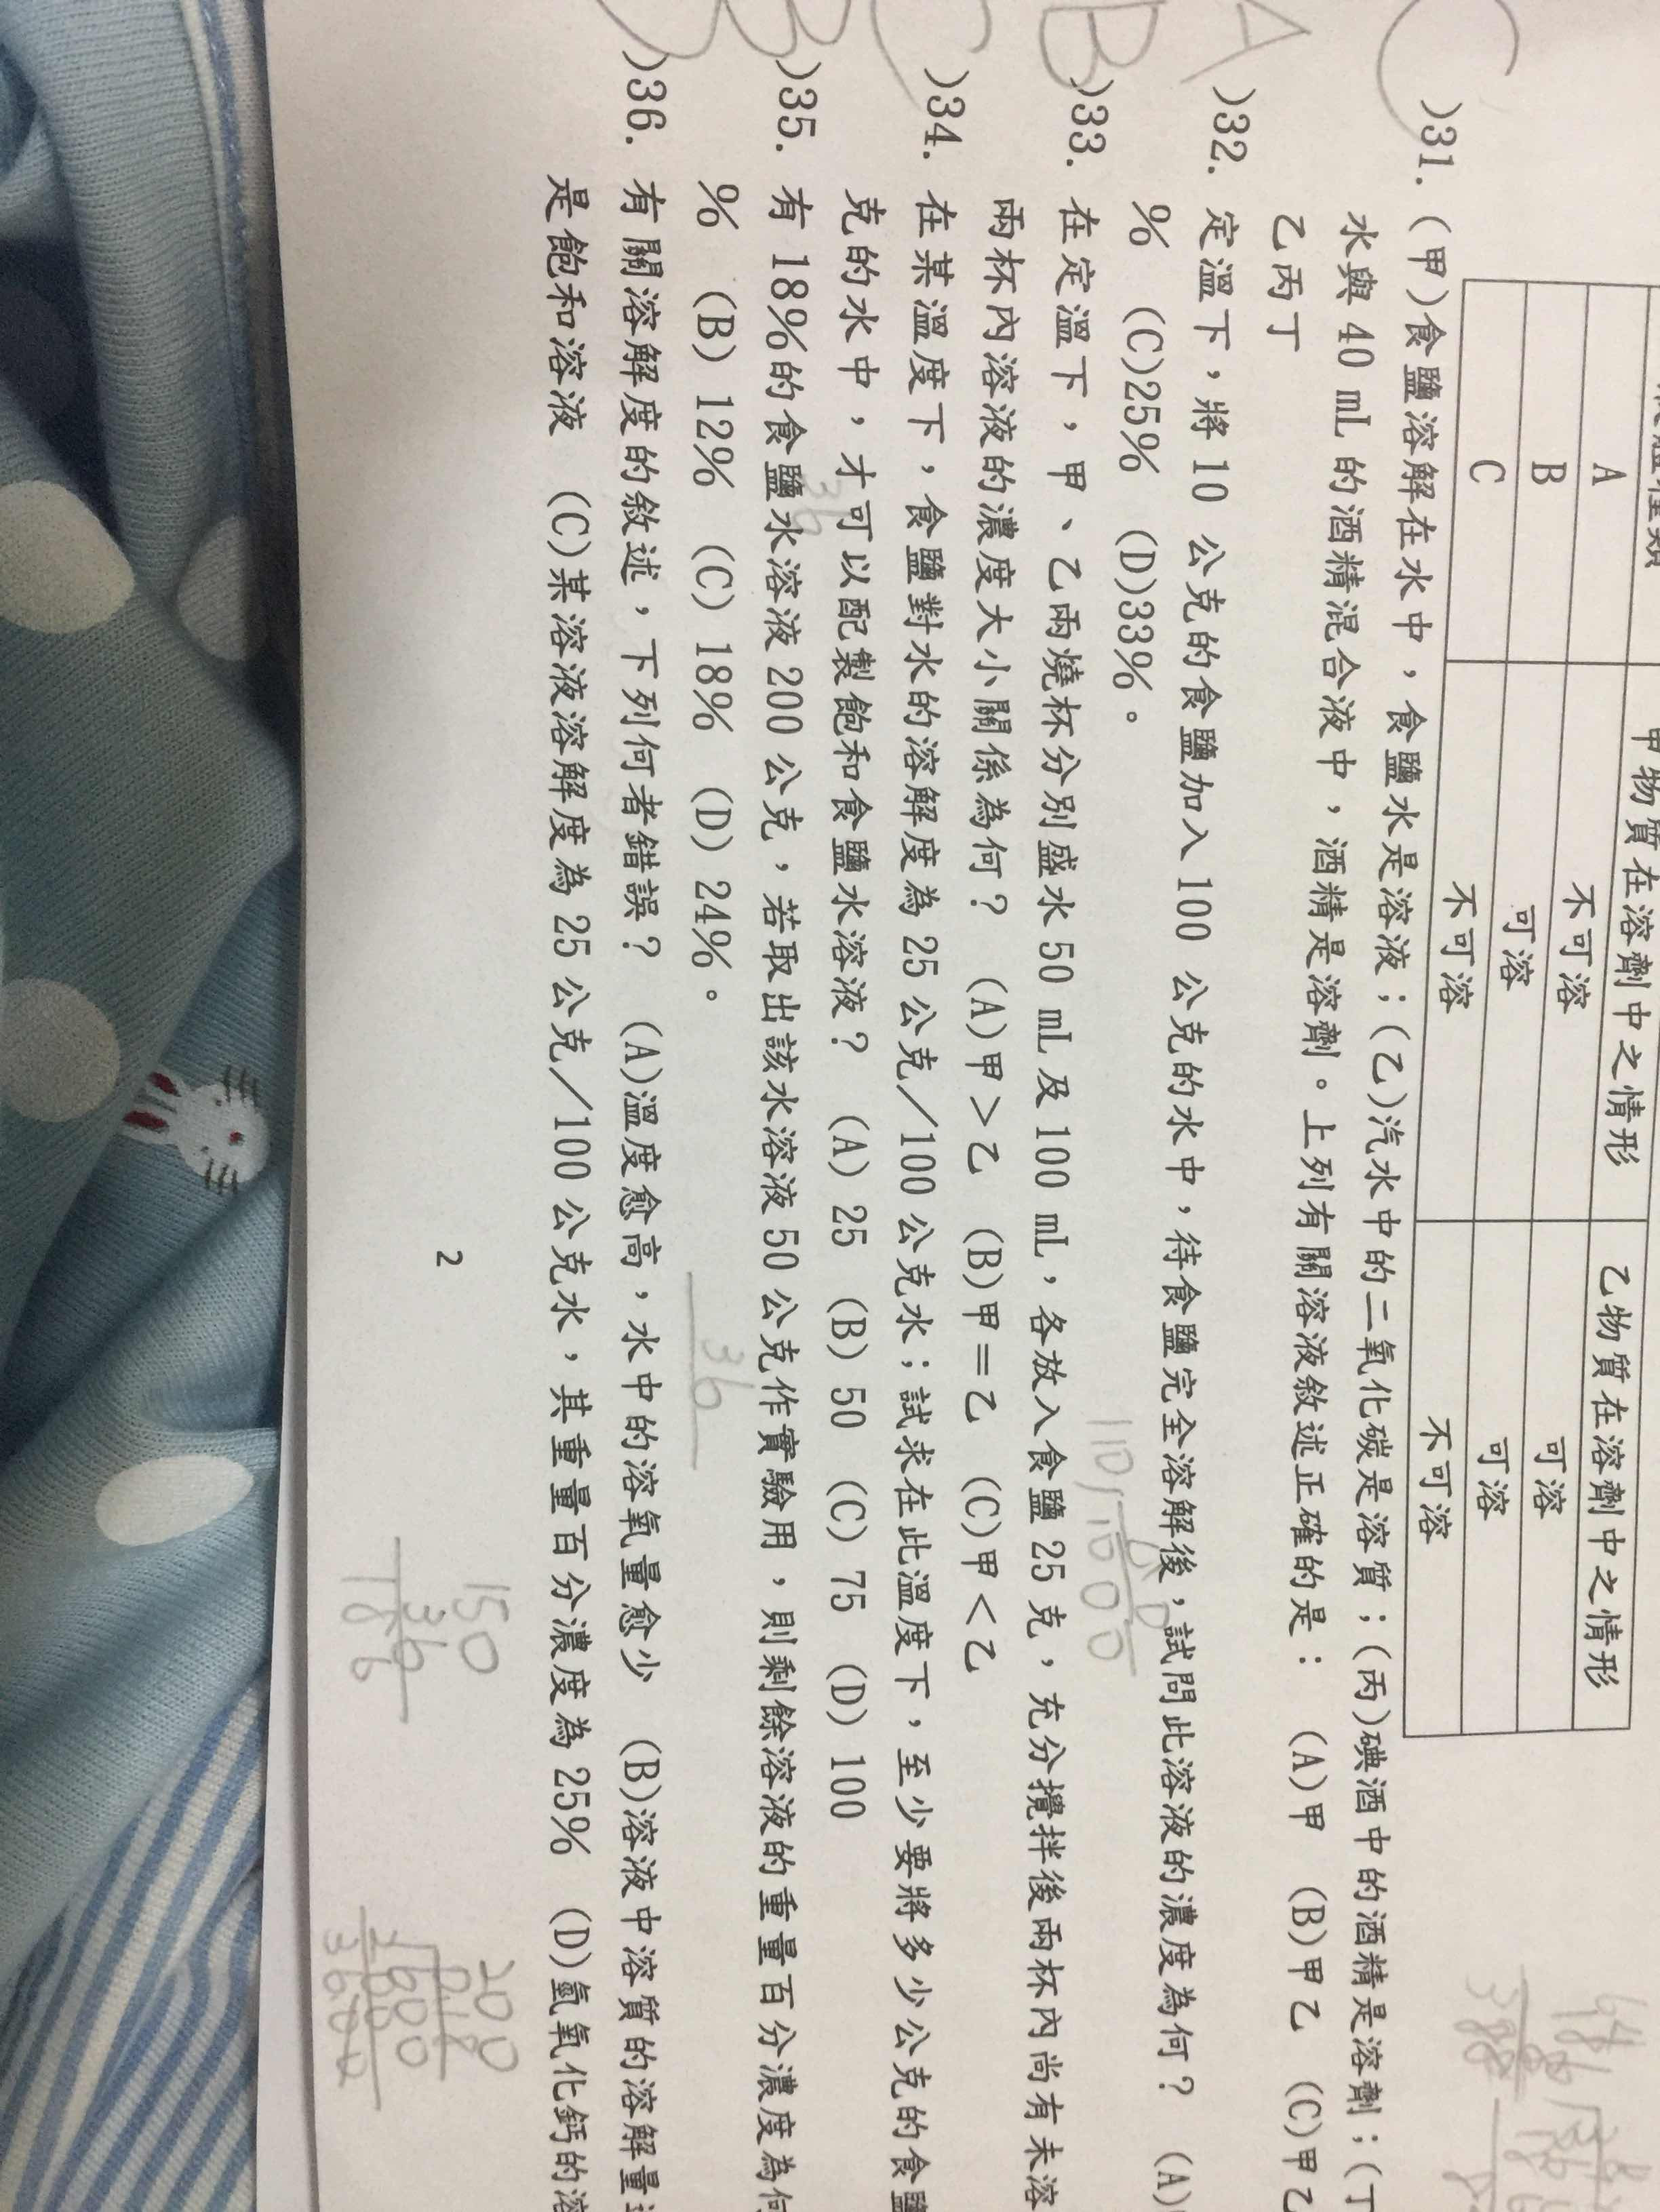 甲物質在溶劑中之情形 乙物質在溶劑中之情形
A 不可溶 可溶
B 可溶 可溶
C 不可溶 不可溶
C )31. (甲)食鹽溶解在水中，食鹽水是溶液；(乙)汽水中的二氧化碳是溶質；(丙)碘酒中的酒精是溶劑；(丁
水與 40 mL 的酒精混合液中，酒精是溶劑。上列有關溶液敘述正確的是： (A)甲 (B)甲乙 (C)甲乙
乙丙丁
A )32. 定溫下，將 10 公克的食鹽加入 100 公克的水中，待食鹽完全溶解後，試問此溶液的濃度為何？ (A)
% (C)25% (D)33%。
B )33. 在定溫下，甲、乙兩燒杯分別盛水 50 mL 及 100 mL，各放入食鹽 25 克，充分攪拌後兩杯內尚有未溶
兩杯內溶液的濃度大小關係為何？ (A)甲＞乙 (B)甲＝乙 (C)甲＜乙
)34. 在某溫度下，食鹽對水的溶解度為 25 公克／100 公克水；試求在此溫度下，至少要將多少公克的食鹽
克的水中，才可以配製飽和食鹽水溶液？ (A) 25 (B) 50 (C) 75 (D) 100
B )35. 有 18%的食鹽水溶液 200 公克，若取出該水溶液 50 公克作實驗用，則剩餘溶液的重量百分濃度為何
% (B) 12% (C) 18% (D) 24%。
36
)36. 有關溶解度的敘述，下列何者錯誤？ (A)溫度愈高，水中的溶氧量愈少 (B)溶液中溶質的溶解量
是飽和溶液 (C)某溶液溶解度為 25 公克／100 公克水，其重量百分濃度為 25% (D)氫氧化鈣的溶
2
150
36
200